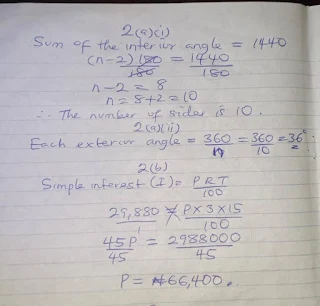 2(a)(i)
Sum of the interior angle = 1440
(n-2) 180 = 1440
180 180
n-2 = 8
n = 8+2 = 10
∴ The number of sides is 10.
2(a)(ii)
Each exterior angle = 360 = 360 = 36°
n 10
2(b)
Simple interest (I) = PRT
100
29,880 = P×3×15
1 100
45P = 2988000
45 45
P = ₦66,400.